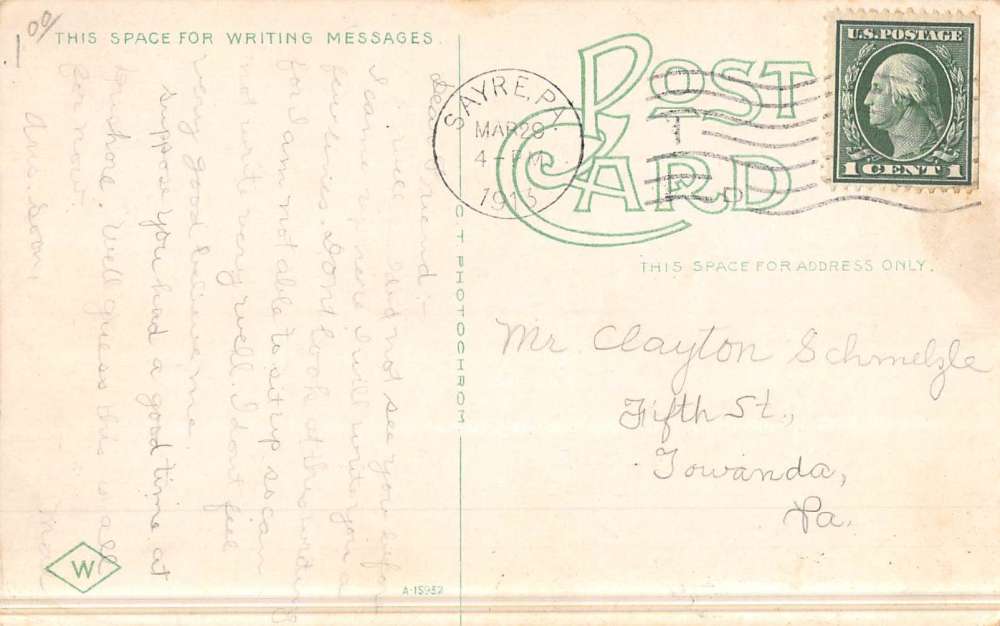 00
THIS SPACE FOR WRITING MESSAGES.
Dear Friend:-
I will did not see you before
I came up here I will write you a
few lines Dont look at the writing
for I am not able to sit up so can
not write very well. I dont feel
very good believe me.
suppose you had a good time at
Well guess this is all
for now.
Ans. Soon.
W
A-15932
CT PHOTOCHROM
POST
CARD
SAYRE, PA.
MAR 29
4-PM
1915
U.S. POSTAGE
1 CENT 1
THIS SPACE FOR ADDRESS ONLY.
Mr Clayton Schmelzle
Fifth St.,
Towanda,
Pa.